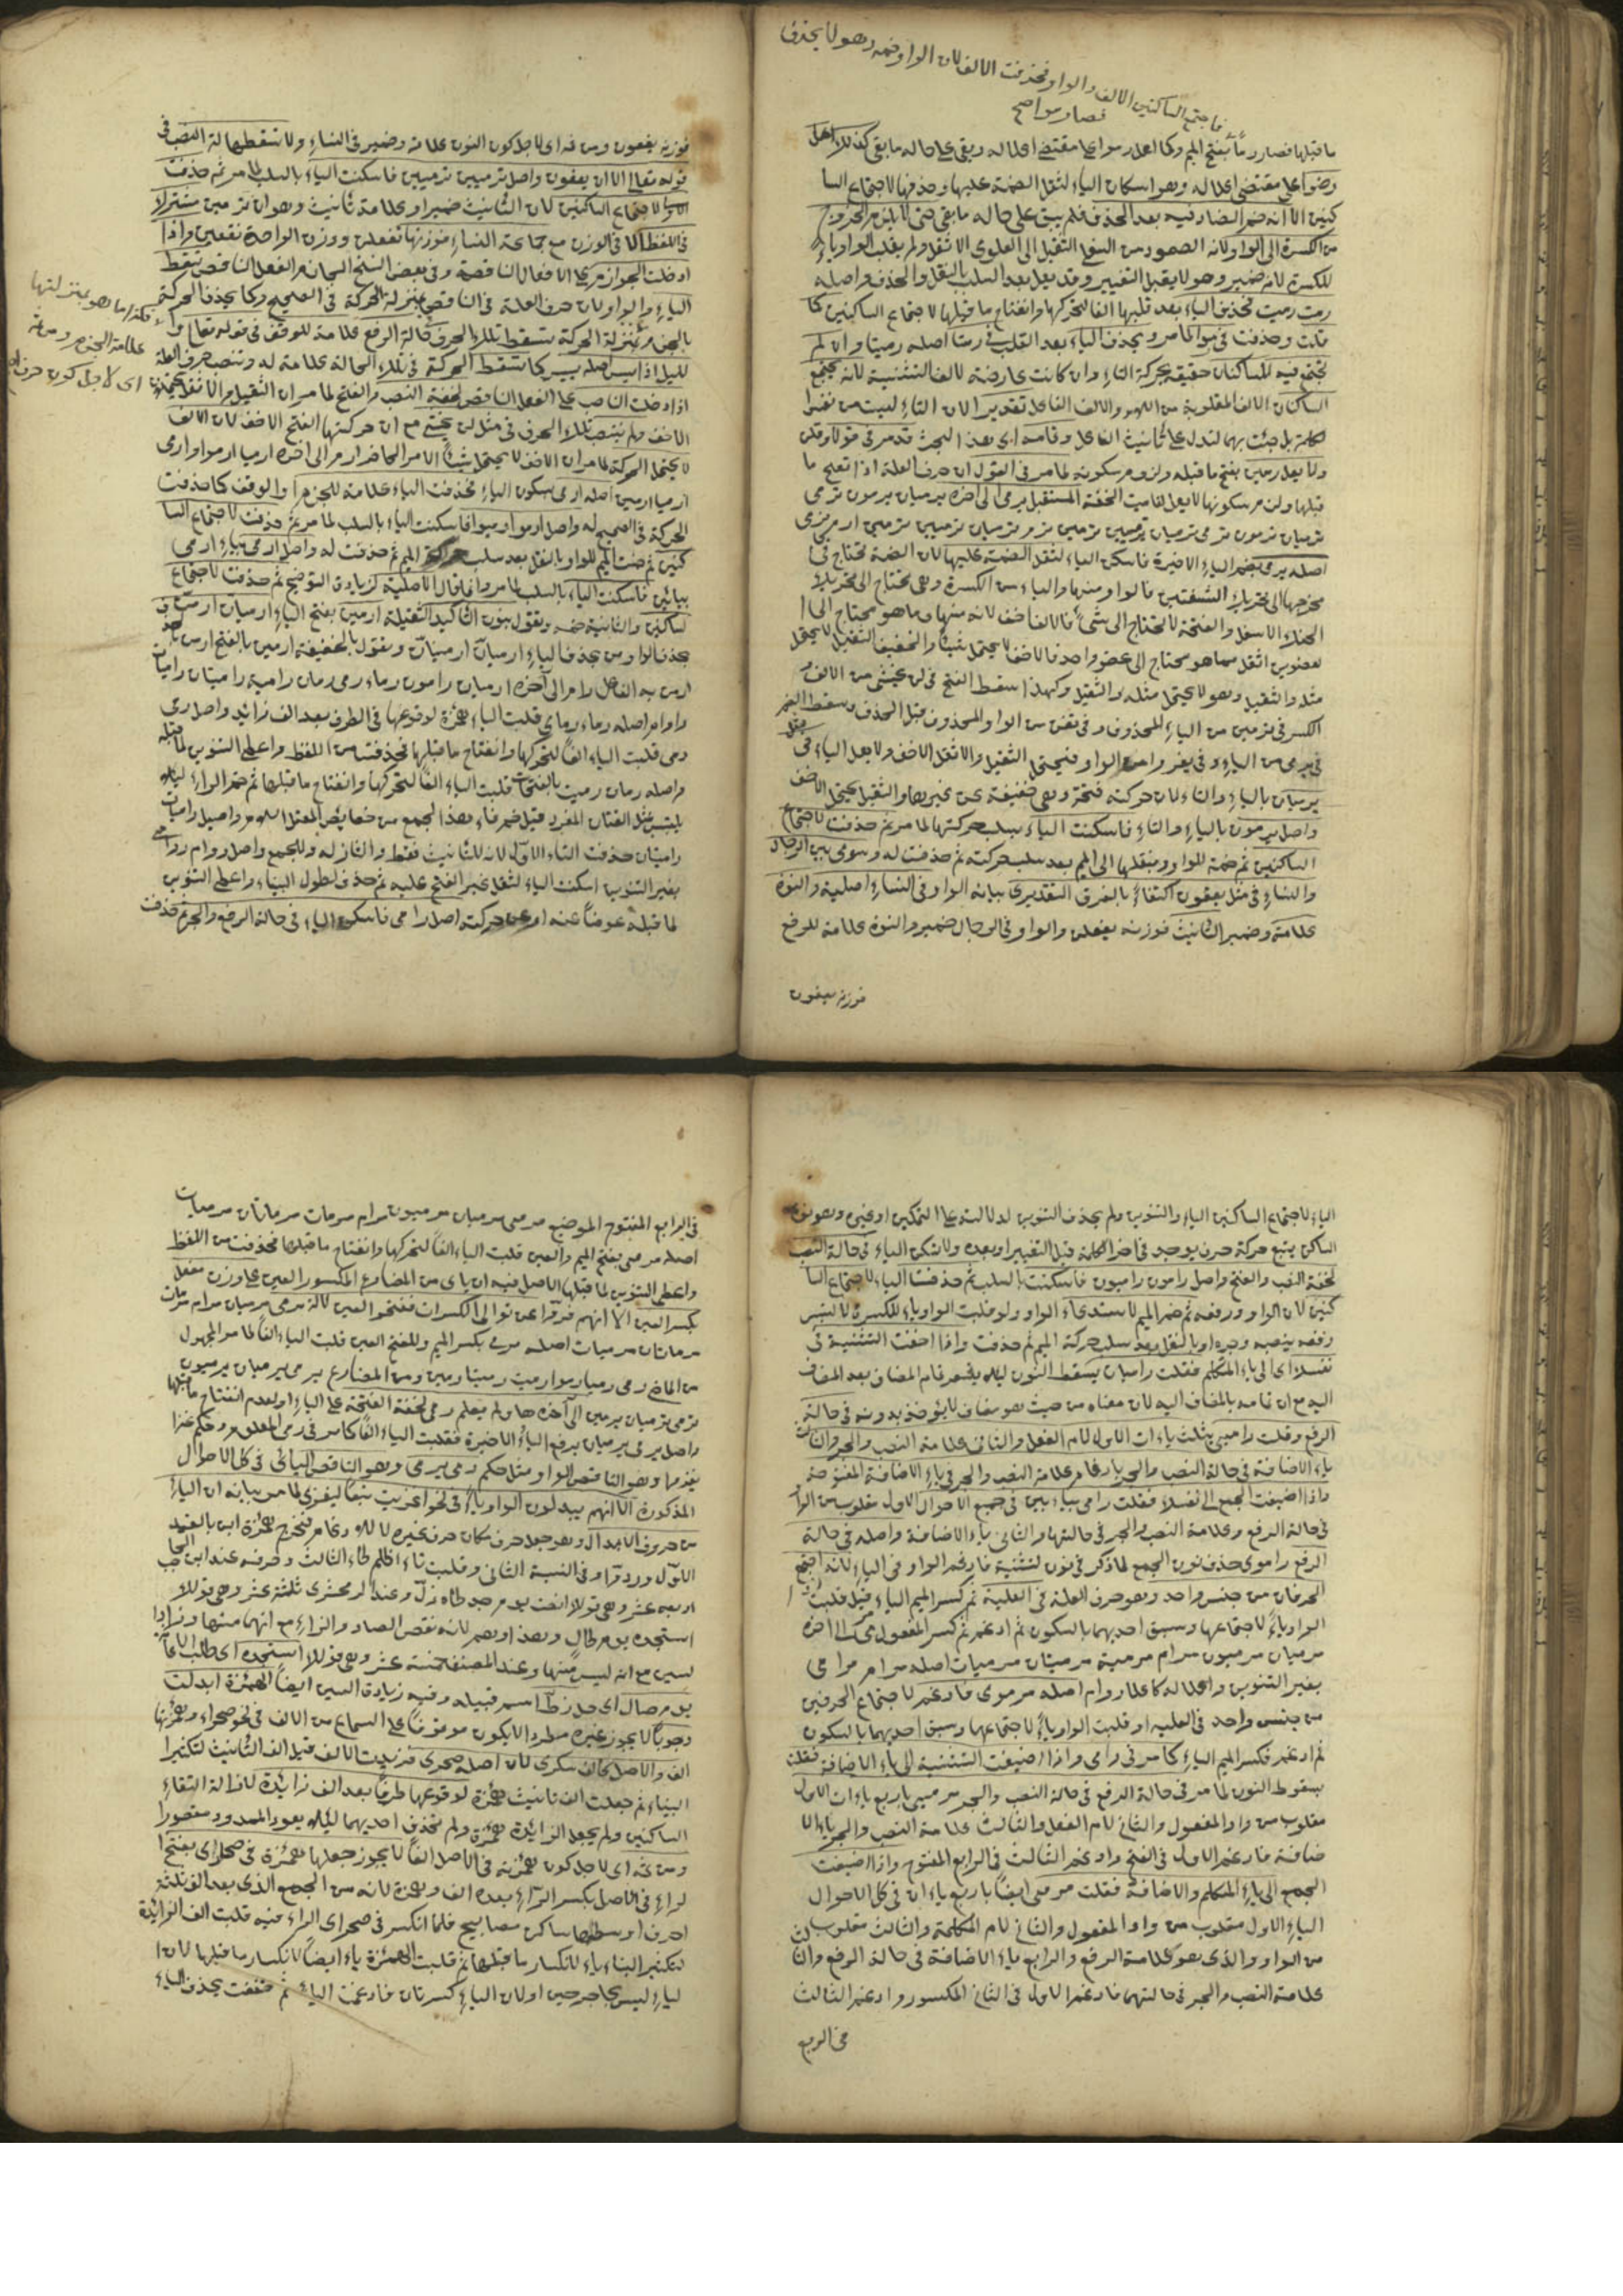 فاجتمع الساكنين الالف والواو فحذفت الالف لان الواو ضمير وهو لا يحذف
فصار رموا صح
ما قبلها فصار رما بفتح الميم وكما اعل رموا على مقتضى اعلاله وبقى على حاله ما بقى كذلك اعل
رضوا على مقتضى اعلاله وهو اسكان الياء لثقل الضمة عليها وحذفها لاجتماع السا
كنين الا انه ضم الضاد فيه بعد الحذف فلم يبق على حاله ما بقى حتى لا يلزم الخروج
من الكسرة الى الواو ولانه الصعود من السفلى الثقيل الى العلوى الاثقل ولم يقلب الواو ياء
للكسرة لانه ضمير وهو لا يقبل التغيير وقد يعل بعد السلب بالنقل والحذف واصله
رمت رميت فحذف الياء بعد قلبها الفا لتحركها وانفتاح ما قبلها لاجتماع الساكنين كما
قلت وحذفت في رموا لما مر ويحذف الياء بعد القلب في رمتا اصله رميتا وان لم
تجتمع فيه الساكنان حقيقة بحركة التاء وان كانت عارضة لالف التثنية لانه يجتمع
الساكنان الالف المقلوبة من اللام والالف الفاعل تقديرا لان التاء ليست من نفس
الكلمة بل جئت بها لتدل على تأنيث الفاعل وتمامه اى هذا البحث قد مر في قولا وقلن
ولا يعل رمين بفتح ما قبله ولزوم سكونه لما مر في القول ان حرف العلة اذا انفتح ما
قبلها ولزم سكونها لا يعل لغاية الخفة المستقبل يرمى الى اخره يرميان يرمون ترمى
ترميان ترمون ترمى ترميان ترميين ترمين ارمى نرمى
اصله يرمى بضم الياء الاخيرة فاسكن الياء لثقل الضمة عليها لان الضمة تحتاج في
مخرجها الى تحريك الشفتين فالواو منها والياء من الكسرة وهى تحتاج الى تحريك
الحنك الاسفل والفتحة لا تحتاج الى شئ فالالف اخف لانه منها وما هو محتاج الى
لعضوين اثقل مما هو محتاج الى عضو واحد فالاخف لا يحتمل شيئا والخفيف الثقيل لا يحتمل
مثله والثقيل وهو لا يحتمل مثله والثقيل ولهذا سقط الفتح في لن يخشى من الالف و
الكسر في ترمين من الياء المحذوف وفي تغزين من الواو المحذوف قبل الحذف وسقط الضم
في يرمى من الياء وفي يغزو من الواو فيحتمل الثقيل والاثقل الاخف ولا يعل الياء في مثل
يرميان بالياء والتاء لان حركته فتحة وهى خفيفة عن غيرها والثقيل يحتمل الاخف
واصل يرمون بالياء والتاء فاسكنت الياء بسلب حركتها لما مر ثم حذفت لاجتماع
الساكنين ثم ضمة للواو وبنقلها الى الميم بعد سلب حركته ثم حذفت له وسوى بين الرجال
والنساء في مثل يعفون اكتفاء بالفرق التقديرى بيانه الواو في النساء اصلية والنون
علامة وضمير التأنيث فوزنه يفعلن والواو في الرجال ضمير والنون علامة للرفع
فوزنه يعفون
فوزنه يفعون ومن ثمه اى لاجل كون النون علامة وضمير في النساء ولا تسقط حالة النصب في
قوله تعالى الا ان يعفون واصل ترميين ترميين فاسكنت الياء بالسلب لما مر ثم حذفت
الاولى لاجتماع الساكنين لان الثانية ضمير او علامة تأنيث وهو اى ترمين مشترك
في اللفظ لا في الوزن مع جماعة النساء فوزنها تفعلن ووزن الواحدة تفعين واذا
ادخلت الجوازم على الافعال الناقصة وفي بعض النسخ الجازم الفعل الناقص تسقط
الياء والواو لان حرف العلة في الناقص بمنزلة الحركة في الصحيح وكما يحذف الحركة
بالجزم بمنزلة الحركة تسقط تلك الحرف حالة الرفع علامة للوقف في قوله تعالى و
لليل اذا يسر اصله يسرى كما تسقط الحركة في تلك الحالة علامة له وتنصب حرف العلة
اذا دخلت الناصب على الفعل الناقص لخفة النصب والفتح لما مر ان الثقيل والاثقل يحتمل
الاخف ولم ينتصب تلك الحرف في مثل لن يخشى مع ان حركتها الفتح الاخف لان الالف
لا يحتمل الحركة لما مر ان الاخف لا يحتمل شيئا الامر الحاضر ارم الى اخره ارميا ارموا ارمى
ارميا ارمين اصله ارمى بسكون الياء فحذفت الياء علامة للجزم والوقف كما حذفت
الحركة في الصحيح له واصل ارموا ارميوا فاسكنت الياء بالسلب لما مر ثم حذفت لاجتماع السا
كنين ثم ضمت الميم للواو بالنقل بعد سلب حركة الميم ثم حذفت له واصل ارمى بياء ارمى
بيائين فاسكنت الياء بالسلب لما مر وانما قال الاصلية لزيادة التوضيح ثم حذفت لاجتماع
لساكنين والثانية ضمه وتقول بنون التأكيد الثقيلة ارمين بفتح الياء ارميان ارمن
بحذف الواو من بحذف الياء ارميان ارمينان وتقول بالخفيفة ارمين بالفتح ارمن
ارمن به الفاعل رام الى آخره راميان رامون رماء رمى رمان رامية راميتان راميات
وروام اصله رماء رماى قلبت الياء همزة لوقوعها في الطرف بعد الف زائد واصل رمى
رمى قلبت الياء الفا لتحركها وانفتاح ما قبلها فحذفت من اللفظ واعطى التنوين لما قبله
واصله رمات رميت بالفتحات قلبت الياء الفا لتحركها وانفتاح ما قبلها ثم ضم الراء لئلا
يلتبس بمثل الفتات المفرد قبل ضم فاء وهذا لجمع من خصايص المعتل اللام واصل راميات
راميتات حذفت التاء الاولى لانه للتأنيث فقط والثانى له وللجمع واصل روام روامى
بغير التنوين اسكنت الياء لثقل غير الفتح عليه ثم حذف لطول البناء واعطى التنوين
لما قبله عوضا عنه او عن حركته اصل رامى فاسكن الياء في حالة الرفع والجر ثم حذفت
فكذا ما هو بمنزلتها
علامة الجزم ومن ثمه
اى لاجل كون حرف
الياء لاجتماع الساكنين الياء والتنوين ولم يحذف التنوين لدلالته على التمكين او غيره وهو نون
الساكن يتبع حركة حرف يوجد في اخر الكلمة قبل التغيير او بعده ولا تسكن الياء في حالة النصب
لخفة النصب والفتح واصل رامون راميون فاسكنت بالسلب ثم حذفت الياء لاجتماع السا
كنين لان الواو ورفعه ثم ضم الميم لاستدعاء الواو ولو قلبت الواو ياء للكسرة لالتبس
رفعه بنصبه وجره او بالنقل بعد سلب حركة الميم ثم حذفت واذا اضفت التثنية في
نفسك اى الى ياء المتكلم فقلت رامياى يسقط النون لئلا يشعر تمام المضاف بعد المضاف
اليه مع ان تمامه بالمضاف اليه لان معناه من حيث هو مضاف لا يؤخذ بدونه في حالة
الرفع وقلت راميى بثلث ياءات الاولى لام الفعل والثانى علامة النصب والجر والثالث
ياء الاضافة في حالة النصب والجر بادغام علامة النصب والجر في ياء الاضافة المفتوحة
واذا اضيفت الجمع الى نفسك فقلت رامى بياءين في جميع الاحوال الاول مقلوب من الواو
في حالة الرفع وعلامة النصب والجر في حالتهما والثانى ياء الاضافة واصله في حالة
الرفع راموى حذف نون الجمع لما ذكر في نون لتثنية فادغم الواو في الياء لانه اجتمع
الحرفان من جنس واحد وهو حرف العلة في العلية ثم كسر الميم الياء قبل قلبت
الواو ياء لاجتماعها وسبق احديهما بالسكون ثم ادغم ثم كسر المفعول مرمى الى اخره
مرميان مرميون مرام مرمية مرميتان مرميات اصله مرام مرامى
بغير التنوين واعلاله كاعلال روام اصله مرموى فادغم لاجتماع الحرفين
من جنس واحد في العلية او قلبت الواو ياء لاجتماعها وسبق احديهما بالسكون
ثم ادغم فكسر الميم الياء كما مر في رامى واذا اضيفت التثنية الى ياء الاضافة فقلت
بسقوط النون لما مر في حالة الرفع في حالة النصب والجر مرميى باربع ياءات الاولى
مقلوب من واو المفعول والثانى لام الفعل والثالث علامة النصب والجر ياء الا
ضافة فادغم الاول في الفتح وادغم الثالث في الرابع المفتوح واذا اضيفت
الجمع الى ياء المتكلم والاضافة فقلت مرمى ايضا باربع ياءات في كل الاحوال
الياء الاول مقلوب من واو المفعول والثانى لام الكلمة والثالث مقلوب
من الواو والذى هو علامة الرفع والرابع ياء الاضافة في حالة الرفع وان
علامة النصب والجر في حالتهما فادغم الاول في الثانى المكسور وادغم الثالث
في الربع
في الرابع المفتوح الموضع مرمى مرميان مرميون مرام مرمات مرماتان مرميات
اصله مرمى بفتح الميم والعين قلبت الياء الفا لتحركها وانفتاح ما قبلها فحذفت من اللفظ
واعطى التنوين لما قبلها الاصل فيه ان ياتى من المضارع المكسور العين على وزن مفعل
بكسر العين الا انهم فروا عن توالى الكسرات ففتحوا العين لآلة مرمى مرميان مرام مرمات
مرماتان مرميات اصله مرمى بكسر الميم وللفتح العين قلبت الياء الفا لما مر المجهول
من الماضى رمى رميا رموا رميت رميتا رمين ومن المضارع يرمى يرميان يرميون
ترمى ترميان يرمين الى آخره ولم يعل رمى لخفة الفتحة على الياء ولعدم انفتاح ما قبلها
واصل يرمى يرميان برفع الياء الاخيرة فقلبت الياء الفا كما مر في رمى المعلوم وحكم غزا
يغزو وهو الناقص الواوى مثل حكم رمى يرمى وهو الناقص اليائى في كل الاحوال
المذكورة الا انهم يبدلون الواو ياء في نحو اغزيت تبعا ليغزى لما مر بيانه ان الياء
من حروف الابدال وهو جعل حرف مكان حرف غيره لا للادغام فيخرج همزة ابن بالقيد
الاول وردقرا وفي النسبة الثانى وقلبت تاء اظلم طاء الثالث وحرفه عند ابن حاجب
اربعة عشر وهى قولك انصت يوم جد طاه زل وعند الزمخشرى ثلثة عشر وهى قولك
استنجده يوم طال وهذا وهم لانه نقص الصاد والزاء مع انهما منها وزاد
لسين مع انه ليس منها وعند المصنف خمسة عشر وهى قولك استنجده اى طلب الاعانة
يوم صال اى حمل زط اسم قبيلة وفيه زيادة السين ايضا الهمزة ابدلت
وجوبا لا يجوز غيره مطردا لا يكون موقوفا على السماع من الالف في نحو صحراء وهمزتها
الف والاصل كالف سكرى لان اصله صحرى فزيدت الالف قبل الف التأنيث لتكثير
البناء ثم جعلت الف تأنيث همزة لوقوعها طرفا بعد الف زائدة لازالة التقاء
الساكنين ولم يجعل الزائدة همزة ولم تحذف احديهما لئلا يعود الممدود مقصورا
ومن ثمه اى لاجل كون همزته في الاصل الفا لا يجوز جعلها همزة في صحارى بفتح
لراء في الاصل بكسر الراء بعده الف وهمزة لانه من الجمع الذى بعد الف ثلثة
احرف اوسطها ساكن مصابيح فلما انكسر في صحراى الراء فيه قلبت الف الزائدة
لتكثير البناء ياء لانكسار ما قبلها ثم قلبت الهمزة ياء ايضا لانكسار ما قبلها لان ا
لياء ليس بحاجز حصين او لان الياء كسرتان فادغمت الياء ثم خففت بحذف الياء